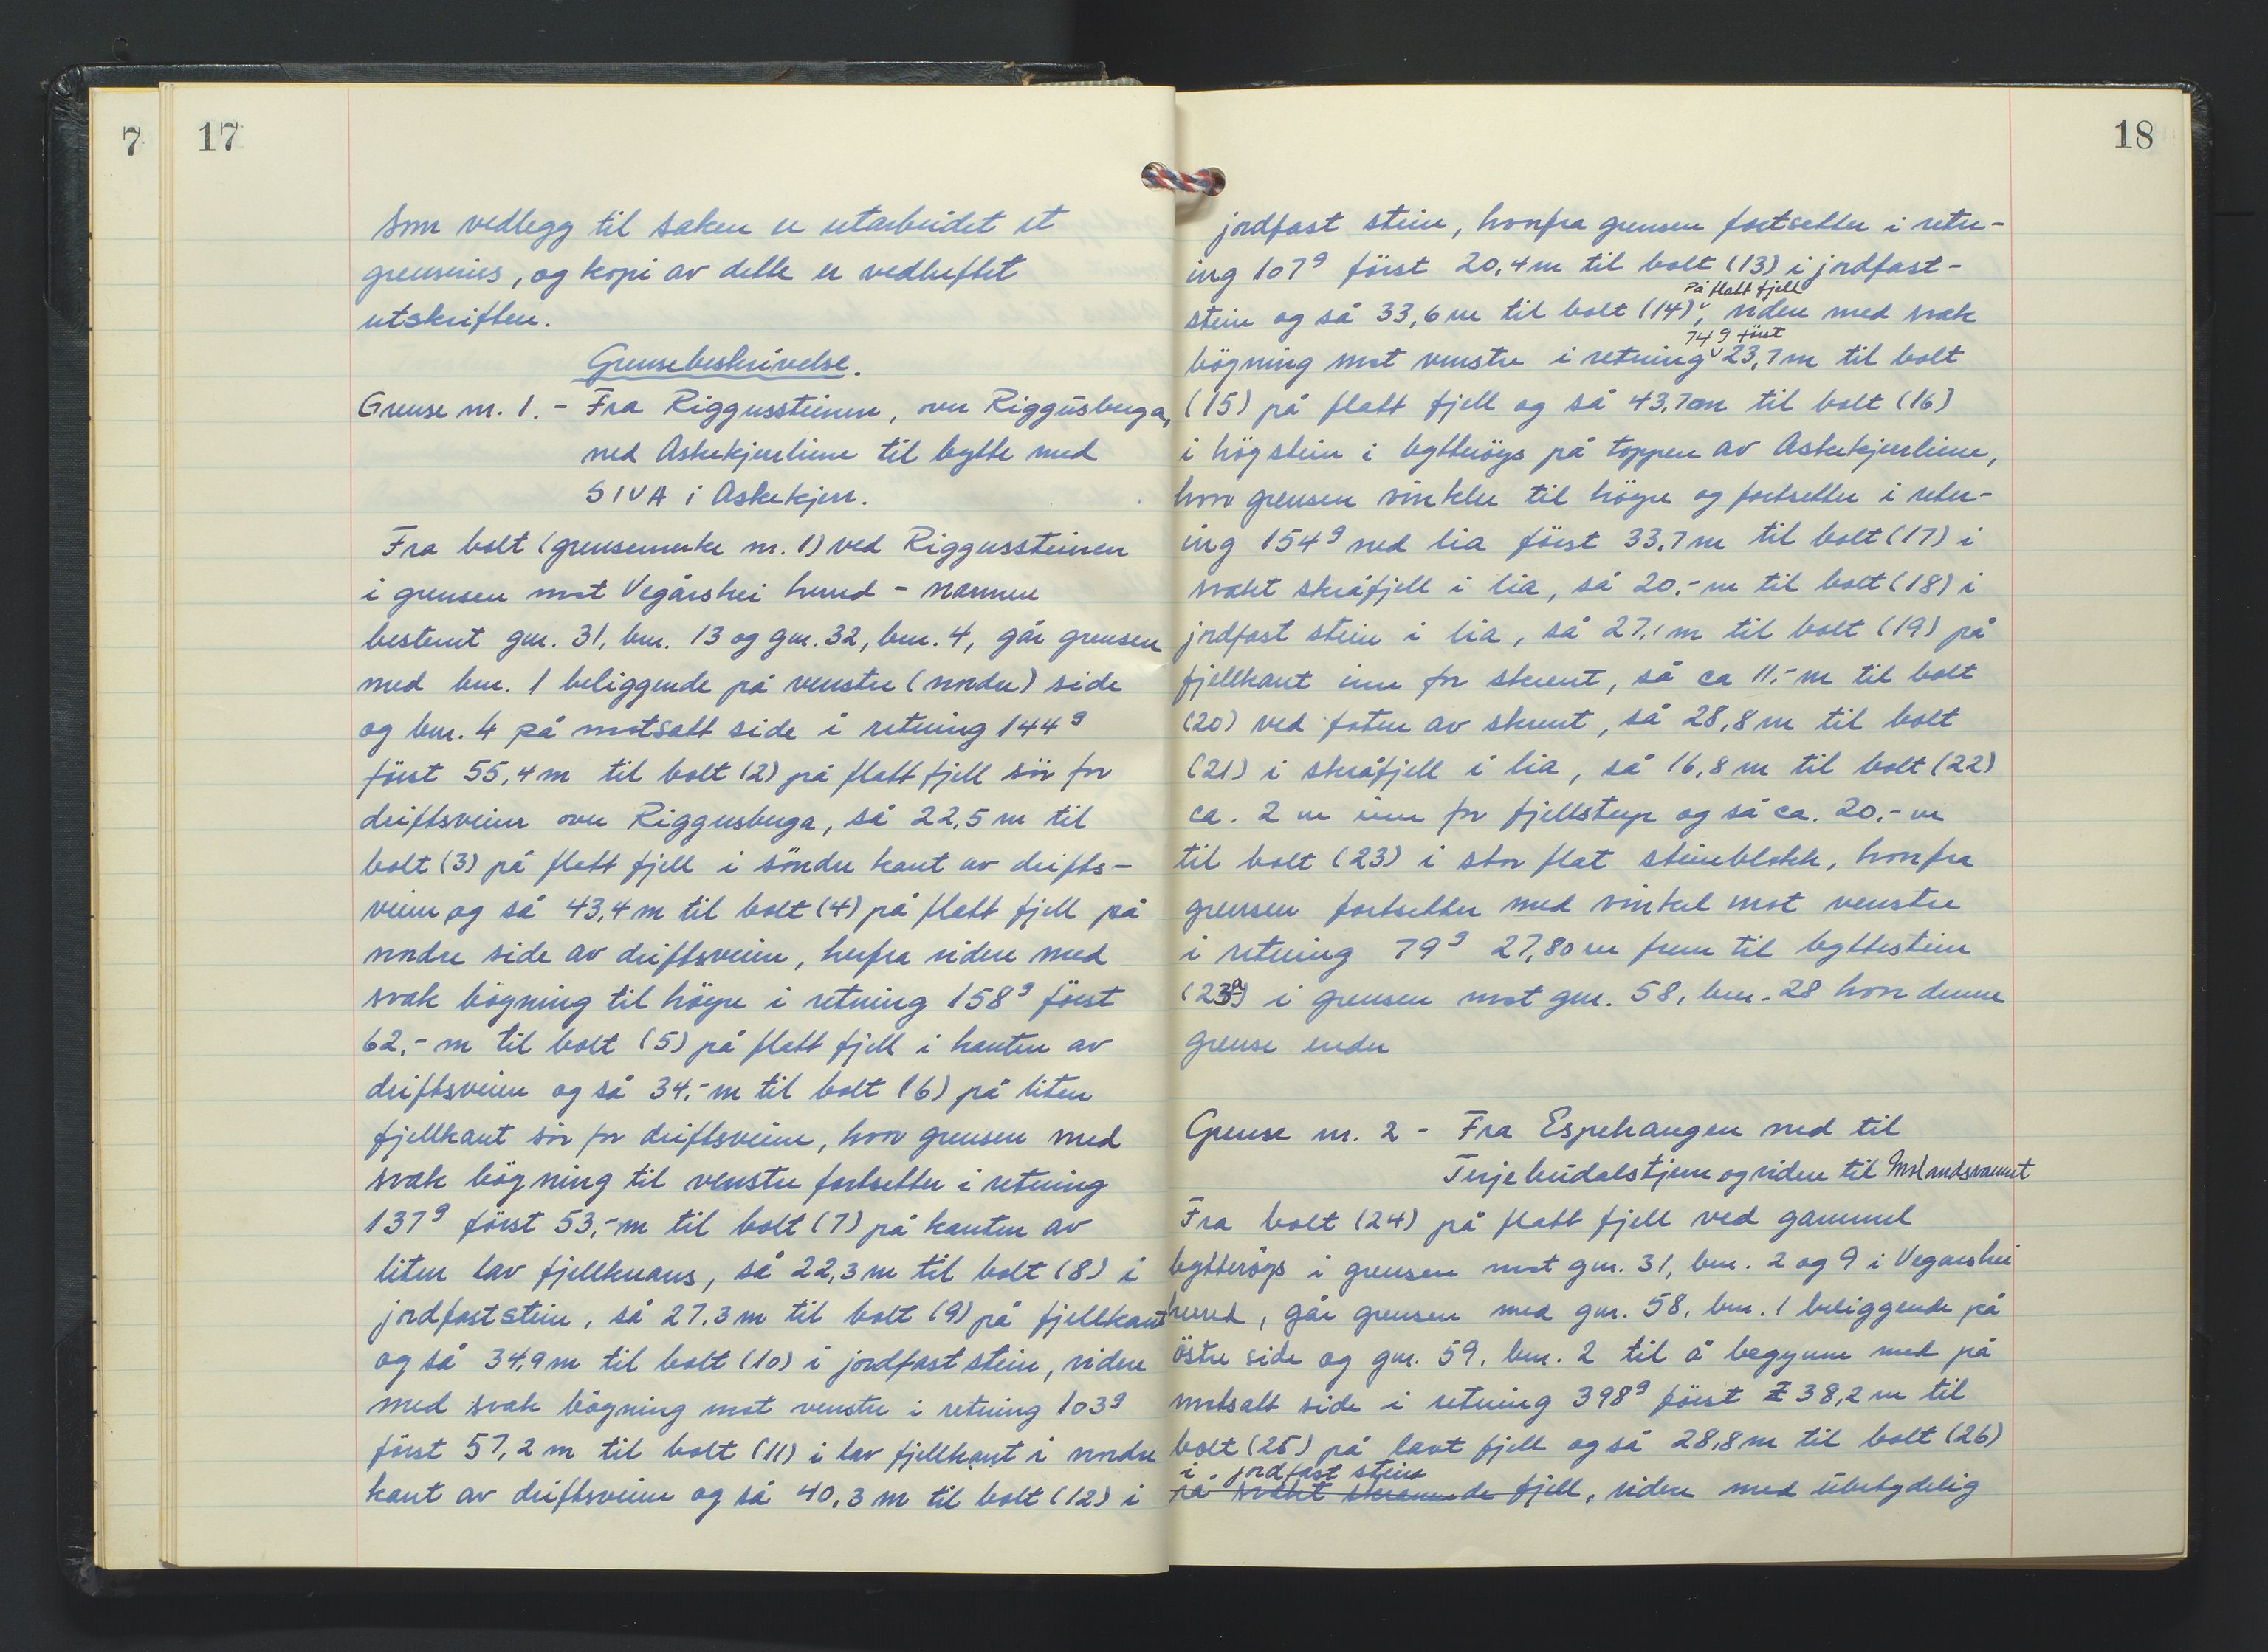 7
17
Som vedlegg til saken er utarbeidet et
grenseriss, og kopi av dette er vedheftet
utskriften.
Grensebeskrivelse.
Grense nr. 1. - Fra Riggussteinen, over Riggusberga,
ned Askekjerrliene til bytte med
SIVA i Askekjerr.
Fra bolt (grensemerke nr. 1) ved Riggussteinen
i grensen mot Vegårshei herred - nærmere
bestemt gnr. 31, bnr. 13 og gnr. 32, bnr. 4, går grensen
med bnr. 1 beliggende på venstre (nordre) side
og bnr. 4 på motsatt side i retning 144g
først 55,4 m til bolt (2) på flatt fjell sör for
driftsveien over Riggusberga, så 22,5 m til
bolt (3) på flatt fjell i söndre kant av drifts-
veien og så 43,4 m til bolt (4) på flatt fjell på
nordre side av driftsveien, herfra videre med
svak bögning til högre i retning 158g först
62,- m til bolt (5) på flatt fjell i kanten av
driftsveien og så 34,- m til bolt (6) på liten
fjellkant sör for driftsveien, hvor grensen med
svak bögning til venstre fortsetter i retning
137g först 53,- m til bolt (7) på kanten av
liten lav fjellknaus, så 22,3 m til bolt (8) i
jordfast stein, så 27,3 m til bolt (9) på fjellkant
og så 34,9 m til bolt (10) i jordfast stein, videre
med svak bögning mot venstre i retning 103g
först 57,2 m til bolt (11) i lav fjellkant i nordre
kant av driftsveien og så 40,3 m til bolt (12) i
18
jordfast stein, hvorfra grensen fortsetter i retn-
ing 107g först 20,4 m til bolt (13) i jordfast-
På flatt fjell
stein og så 33,6 m til bolt (14), videre med svak
74g först
bögning mot venstre i retning 23,7 m til bolt
(15) på flatt fjell og så 43,7 m til bolt (16)
i hög stein i bytteröys på toppen av Askekjerrliene,
hvor grensen vinkler til högre og fortsetter i retn-
ing 154g ned lia först 33,7 m til bolt (17) i
svakt skråfjell i lia, så 20,- m til bolt (18) i
jordfast stein i lia, så 27,1 m til bolt (19) på
fjellkant inne for skrent, så ca 11,- m til bolt
(20) ved foten av skrent, så 28,8 m til bolt
(21) i skråfjell i lia, så 16,8 m til bolt (22)
ca. 2 m inne for fjellstup og så ca. 20,- m
til bolt (23) i stor flat steinblokk, hvorfra
grensen fortsetter med vinkel mot venstre
i retning 79g 27,80 m frem til byttestein
(23a) i grensen mot gnr. 58, bnr. 28 hvor denne
grense ender
Grense nr. 2 - Fra Espehaugen ned til
Terjebudalstjern og videre til Molandsvannet
Fra bolt (24) på flatt fjell ved gammel
bytteröys i grensen mot gnr. 31, bnr. 2 og 9 i Vegårshei
herred, går grensen med gnr. 58, bnr. 1 beliggende på
östre side og gnr. 59, bnr. 2 til å begynne med på
motsatt side i retning 398g först 38,2 m til
bolt (25) på lavt fjell og så 28,8 m til bolt (26)
i jordfast stein
på svakt skrånende fjell, videre med ubetydelig